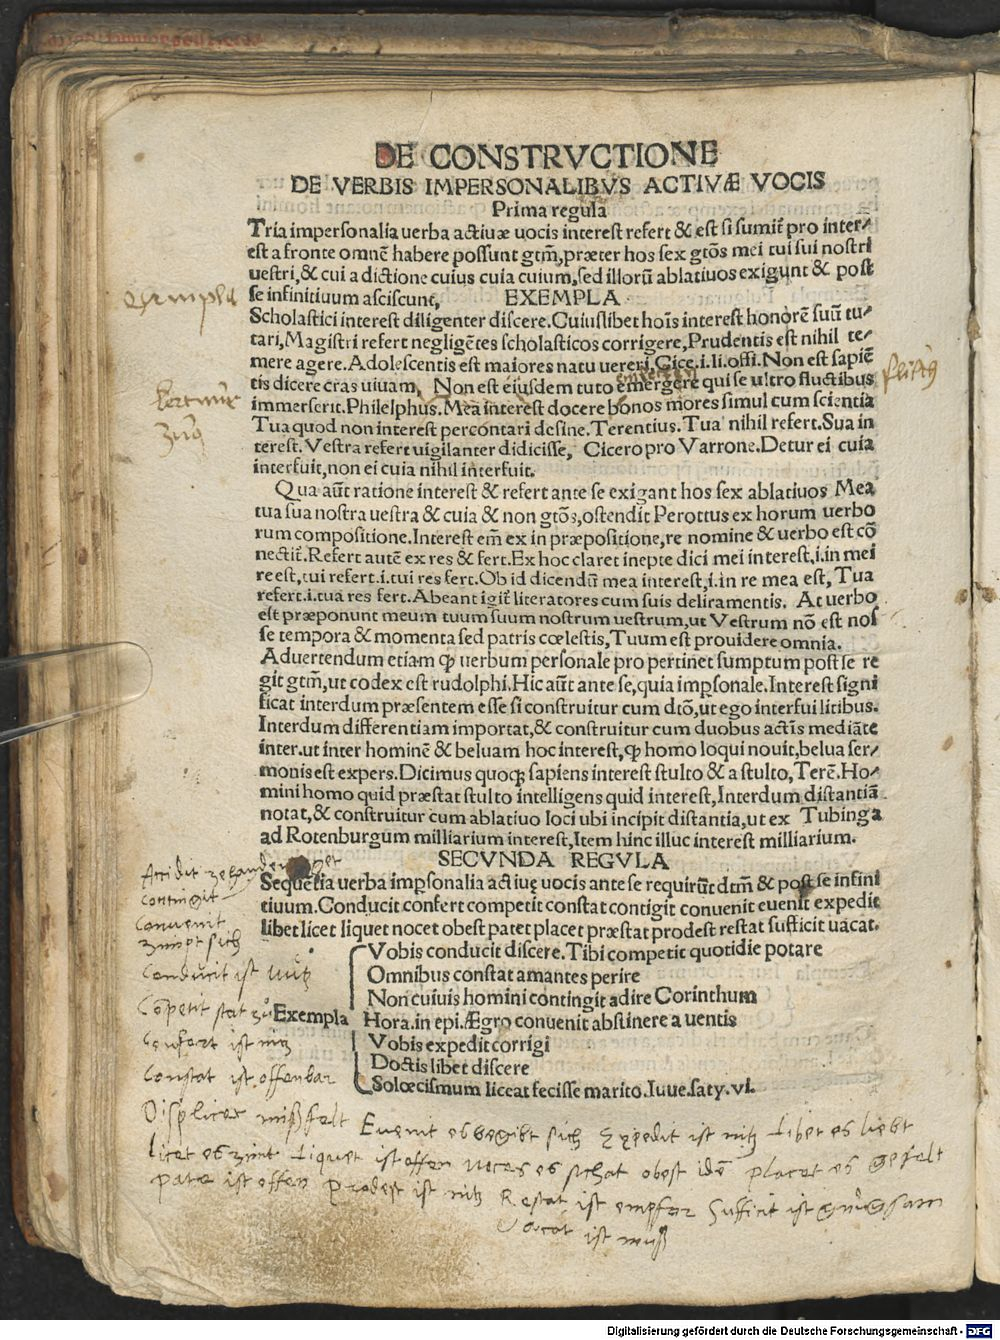 DE CONSTRVCTIONE
DE VERBIS IMPERSONALIBVS ACTIVÆ VOCIS
Prima regula
Tria impersonalia uerba actiuæ uocis interest refert & est si sumit̃ pro inter⸗
est a fronte omnẽ habere possunt gtm̃, præter hos sex gtõs mei tui sui nostri
uestri, & cui a dictione cuius cuia cuium, sed illorũ ablatiuos exigunt & post
se infinitiuum asciscunt,
EXEMPLA
Scholastici interest diligenter discere. Cuiuslibet hoĩs interest honorẽ suũ tu⸗
tari, Magistri refert negligẽtes scholasticos corrigere, Prudentis est nihil te⸗
mere agere. Adolescentis est maiores natu uereri, Cice. i. li. offi. Non est sapiẽ
tis dicere cras uiuam, Non est eiusdem tuto emergere qui se ultro fluctibus
immerserit. Philelphus. Mea interest docere bonos mores simul cum scientia
Tua quod non interest percontari desine. Terentius. Tua nihil refert. Sua in
terest. Vestra refert uigilanter didicisse, Cicero pro Varrone. Detur ei cuia
interfuit, non ei cuia nihil interfuit.
Qua aũt ratione interest & refert ante se exigant hos sex ablatiuos Mea
tua sua nostra uestra & cuia & non gtõs, ostendit Perottus ex horum uerbo
rum compositione. Interest em̃ ex in præpositione, re nomine & uerbo est cõ
nectit̃. Refert autẽ ex res & fert. Ex hoc claret inepte dici mei interest, i. in mei
re est, tui refert. i. tui res fert. Ob id dicendũ mea interest, i. in re mea est, Tua
refert. i. tua res fert. Abeant igit̃ literatores cum suis deliramentis. At uerbo
est præponunt meum tuum suum nostrum uestrum, ut Vestrum nõ est nos
se tempora & momenta sed patris cœlestis, Tuum est prouidere omnia.
Aduertendum etiam ꝙ uerbum personale pro pertinet sumptum post se re
git gtm̃, ut codex est rudolphi. Hic aũt ante se, quia imp̱sonale. Interest signi
ficat interdum præsentem esse si construitur cum dtõ, ut ego interfui litibus.
Interdum differentiam importat, & construitur cum duobus actĩs mediãte
inter. ut inter hominẽ & beluam hoc interest, ꝙ homo loqui nouit, belua ser⸗
monis est expers. Dicimus quoqꝫ sapiens interest stulto & a stulto, Terẽ. Ho⸗
mini homo quid præstat stulto intelligens quid interest, Interdum distantiã
notat, & construitur cum ablatiuo loci ubi incipit distantia, ut ex Tubinga
ad Rotenburgum milliarium interest, Item hinc illuc interest milliarium.
SECVNDA REGVLA
Sequẽtia uerba imp̱sonalia actiuę uocis ante se requirũt dtm̃ & post se infini
tiuum. Conducit confert competit constat contigit conuenit euenit expedit
libet licet liquet nocet obest patet placet præstat prodest restat sufficit uacat.
Exempla
Vobis conducit discere. Tibi competit quotidie potare
Omnibus constat amantes perire
Non cuiuis homini contingit adire Corinthum
Hora. in epi. Ægro conuenit abstinere a uentis
Vobis expedit corrigi
Doctis libet discere
Solœcismum liceat fecisse marito. Iuue. saty. vi.
exempla
Accidit
contingit
Convenit
zimpt sich
Conducit ist nutz
Competit stat zu
Confert ist nitz
Constat ist offenbar
Displicet mißfelt Evenit es begibt sich Expedit ist nitz Libet es liebt
licet es zimt Liquet ist offen Nocet es schat obest idẽ placet es gefelt
patet ist offen Prodest ist nitz Restat ist Sufficit ist gnůgsam
Vacat ist
Digitalisierung gefördert durch die Deutsche Forschungsgemeinschaft - DFG